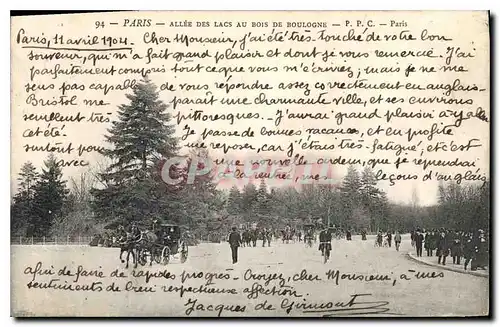 94 - PARIS - ALLÉE DES LACS AU BOIS DE BOULOGNE - P. P. C. - Paris
Paris, 11 avril 1904. Cher Monsieur, j'ai été très touché de votre bon
souveur, qui m'a fait grand plaisir et dont je vous remercie. J'ai
parfaitement compris tout ce que vous m'écrivez; mais je ne me
sens pas capable de vous répondre assez correctement en anglais.
Bristol me paraît une charmante ville, et ses environs
semblent très pittoresques. J'aurai grand plaisir à y aller
cet été. Je passe de bonnes vacances, et en profite
surtout pour me reposer, car j'étais très fatigué, et c'est
avec une nouvelle ardeur, que je reprendrai
à la rentrée, mes leçons d'anglais
CPARAMA
afin de faire de rapides progrès. Croyez, cher Monsieur, à mes
sentiments de bien respectueuse affection.
Jacques de Girmont